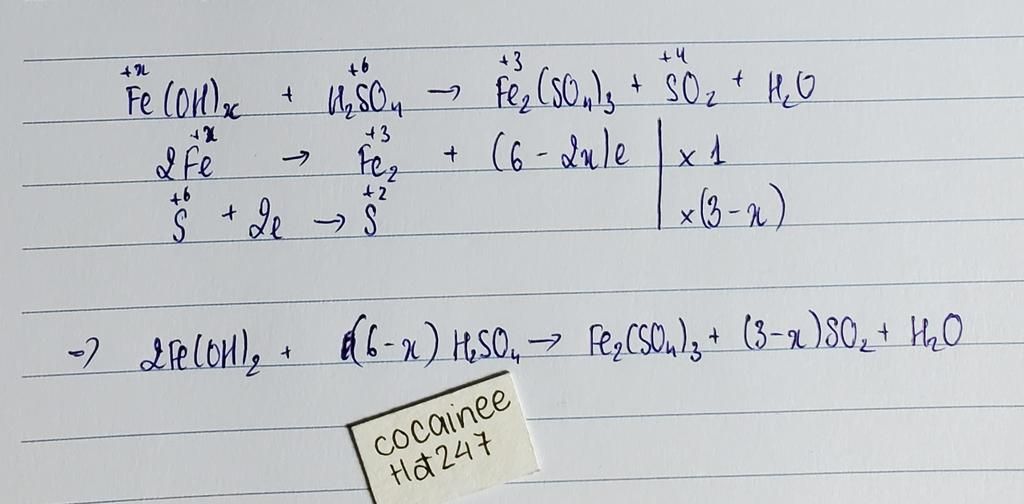 +x +6 +3 +4
Fe(OH)x + H2SO4 → Fe2(SO4)3 + SO2 + H2O
+x +3
2Fe → Fe2 + (6 - 2x)e | x 1
+6 +2
S + 2e → S | x (3 - x)
=> 2Fe(OH)2 + (6 - x) H2SO4 → Fe2(SO4)3 + (3 - x)SO2 + H2O
cocainee
Hđ247